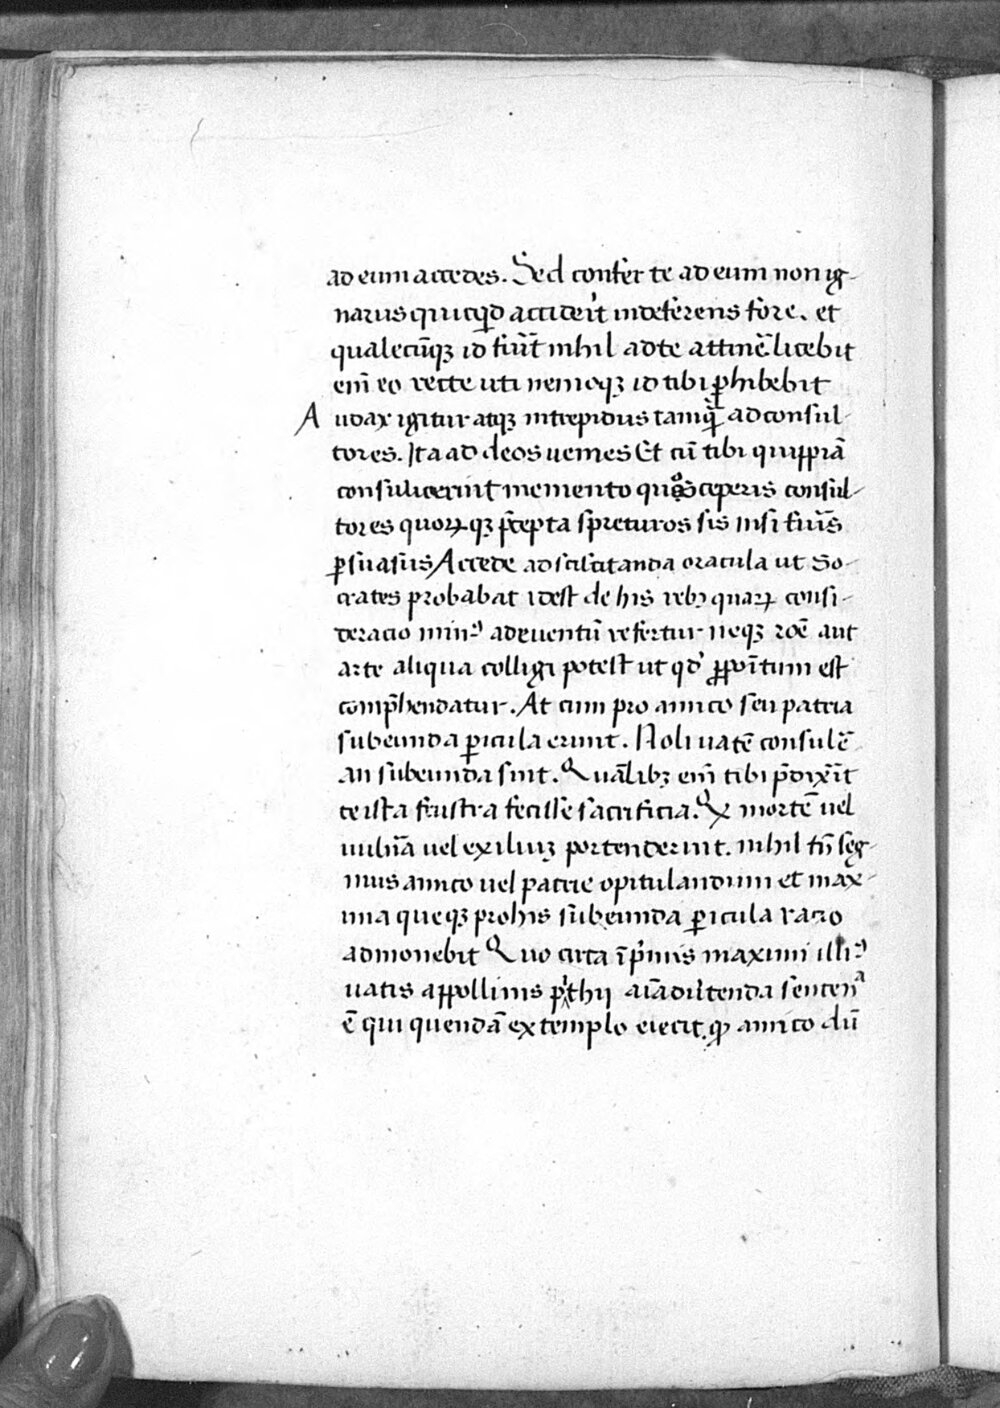 ad eum accedes. Sed confer te ad eum non ig-
narus quicq̄d accideri͛t indeferens fore. et
qualecūqꝫ id fūīt nihil adte attinē. licebit
enī eo recte uti nemoqꝫ id tibi ꝓhibebit
Audax igitur atqꝫ intrepidus tamq̄ ad consul-
tores. Ita ad deos uenies Et cū tibi quippiā
consuluerint memento quos ceperis consul-
tores quorꝝqꝫ p̄cepta spreturos sis nisi fūīs
ꝑsuasus Accede ad scitanda oracula ut So-
crates probabat idest de his rebꝫ quarꝝ consi-
deracio minꝰ ad euentū refertur neqꝫ roē aut
arte aliqua colligi potest ut qd' ꝓpoītum est
comp̄hendatur. At cum pro amico seu patria
subeunda ꝑicula erunt. Noli uatē consulē
an subeunda sint. Quālibꝫ enī tibi p̄dixīt
te ista frustra fecisse sacrificia. Qꝫ mortē uel
uulnā uel exiliuꝫ portenderint. nihil tn̄ seg-
nius amico uel patrie opitulandum et max-
ima queqꝫ pro his subeunda ꝑicula racio
admonebit Quo circa īp̄mis maximi illiꝰ
uatis appollinis pithii aīaduertenda sentenᵃ
ē qui quendā ex templo eiecit. ꝙ amico dū